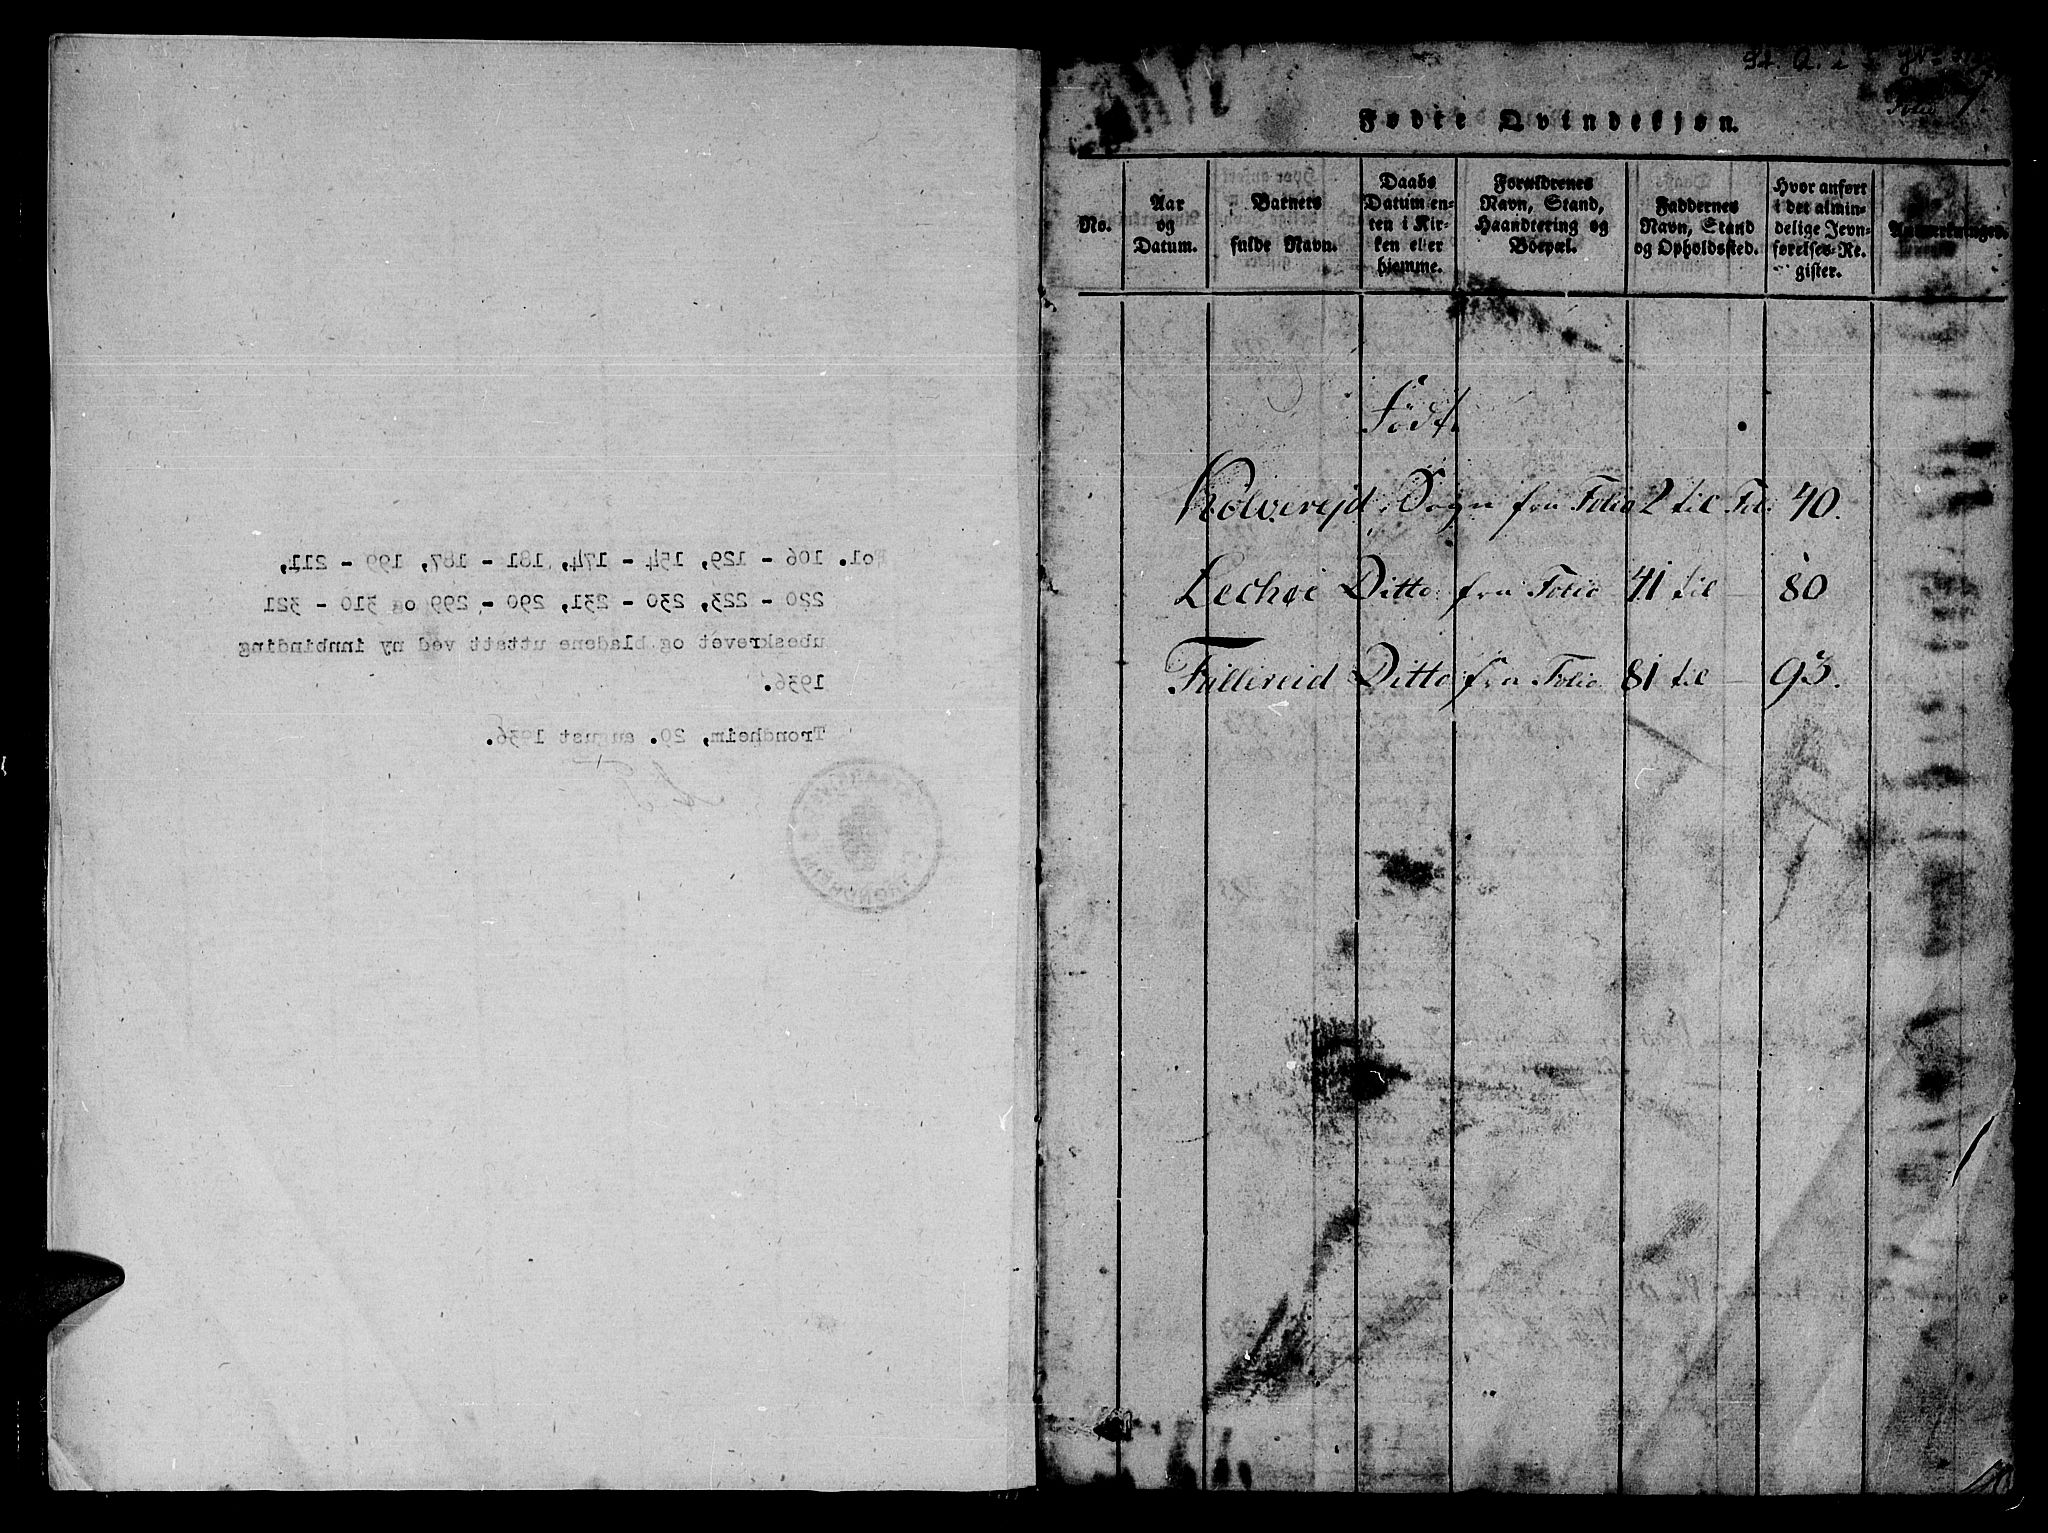 Fol. 106 - 129, 154 - 174, 181 - 187, 199 - 211,
220 - 223, 230 - 231, 290 - 299 og 310 - 321
ubeskrevet og bladene uttatt ved ny innbinding
1936.
Trondheim, 29. august 1936.
Folio
Fødte Qvindekjøn.
No.
Aar og Datum.
Barnets fulde Navn.
Daabs Datum enten i Kirken eller hjemme.
Forældrenes Navn, Stand, Haandtering og Boepæl.
Faddernes Navn, Stand og Opholdssted.
Hvor anført i det almindelige Jevnførelses-Register.
Anmerkninger.
Født
Kolvereid Sogn fra Folio 2 til Fol: 40.
Lechøe Ditto fra Folio 41 til - 80
Follereid Ditto fra Folio 81 til - 93.